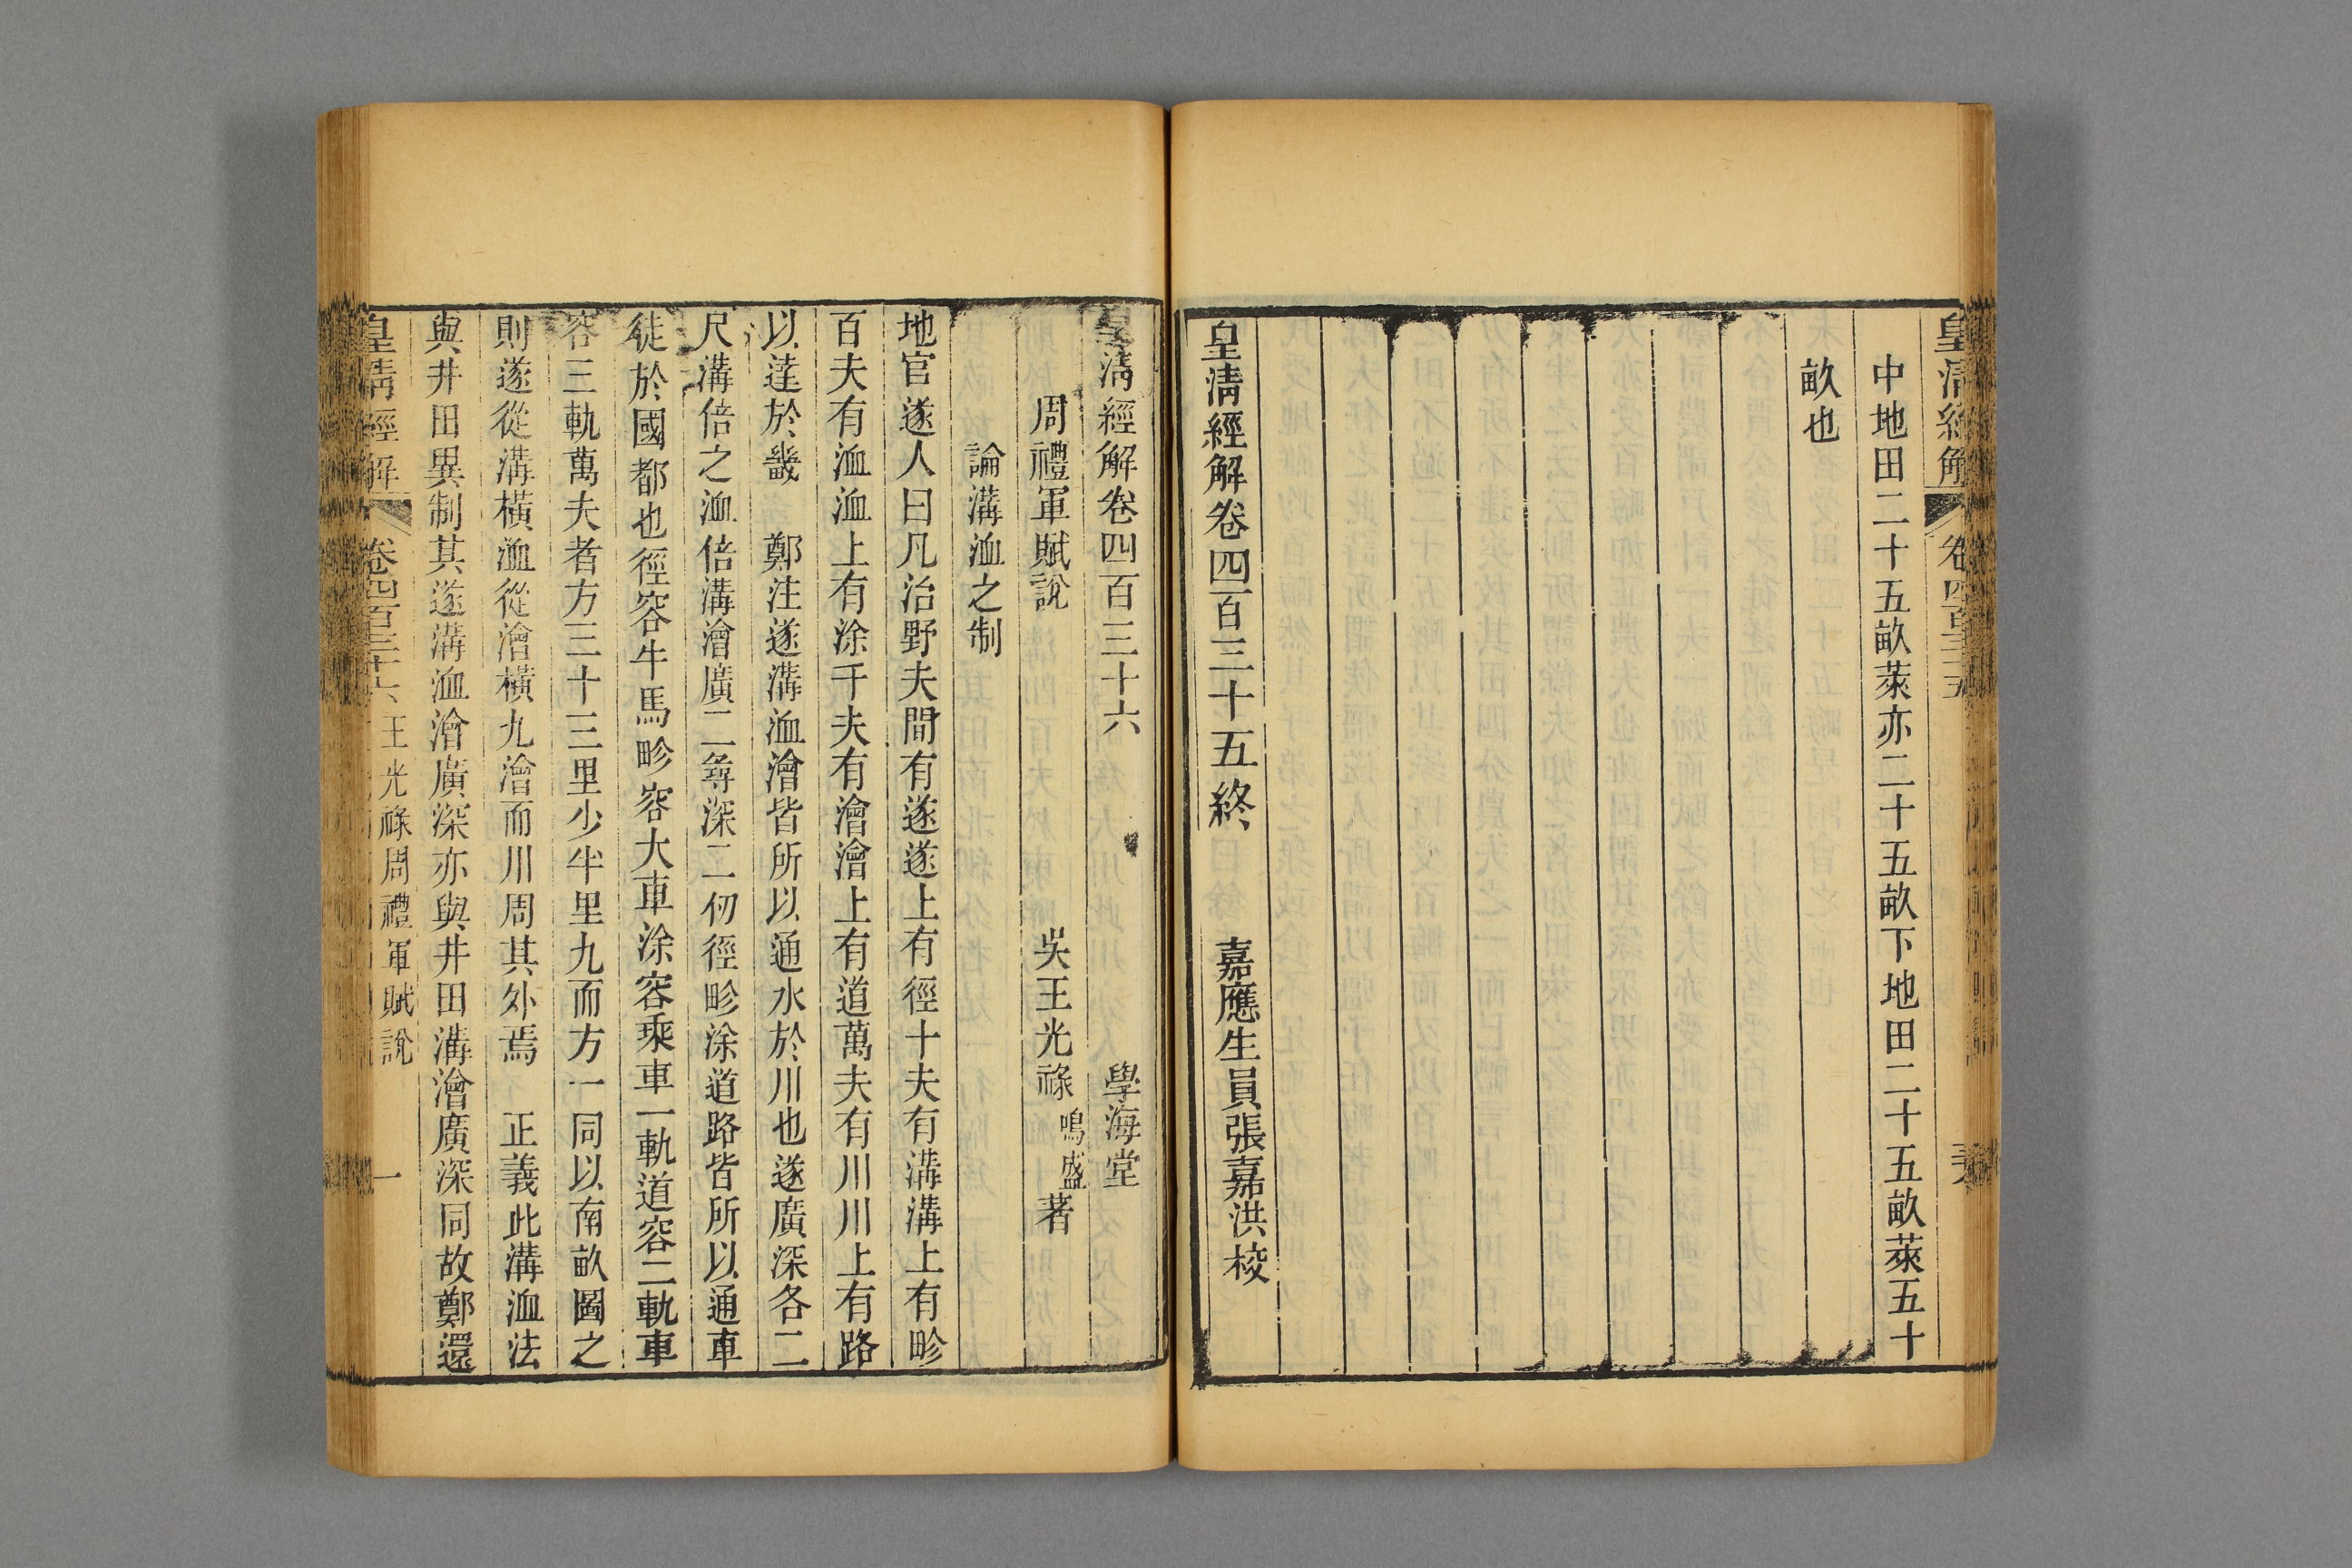 皇清經解 卷四百三十五
中地田二十五畝萊亦二十五畝下地田二十五畝萊五十
畝也
皇清經解卷四百三十五終 嘉應生員張嘉洪校
皇清經解卷四百三十六 學海堂
周禮軍賦說 吳王光祿鳴盛著
論溝洫之制
地官遂人曰凡治野夫間有遂遂上有徑十夫有溝溝上有畛
百夫有洫洫上有涂千夫有澮澮上有道萬夫有川川上有路
以達於畿 鄭注遂溝洫澮皆所以通水於川也遂廣深各二
尺溝倍之洫倍溝澮廣二尋深二仞徑畛涂道路皆所以通車
徒於國都也徑容牛馬畛容大車涂容乘車一軌道容二軌車
容三軌萬夫者方三十三里少半里九而方一同以南畝圖之
則遂從溝橫洫從澮橫九澮而川周其外焉 正義此溝洫法
與井田異制其遂溝洫澮廣深亦與井田溝澮廣深同故鄭還
皇清經解 卷四百三十六 王光祿周禮軍賦說 一